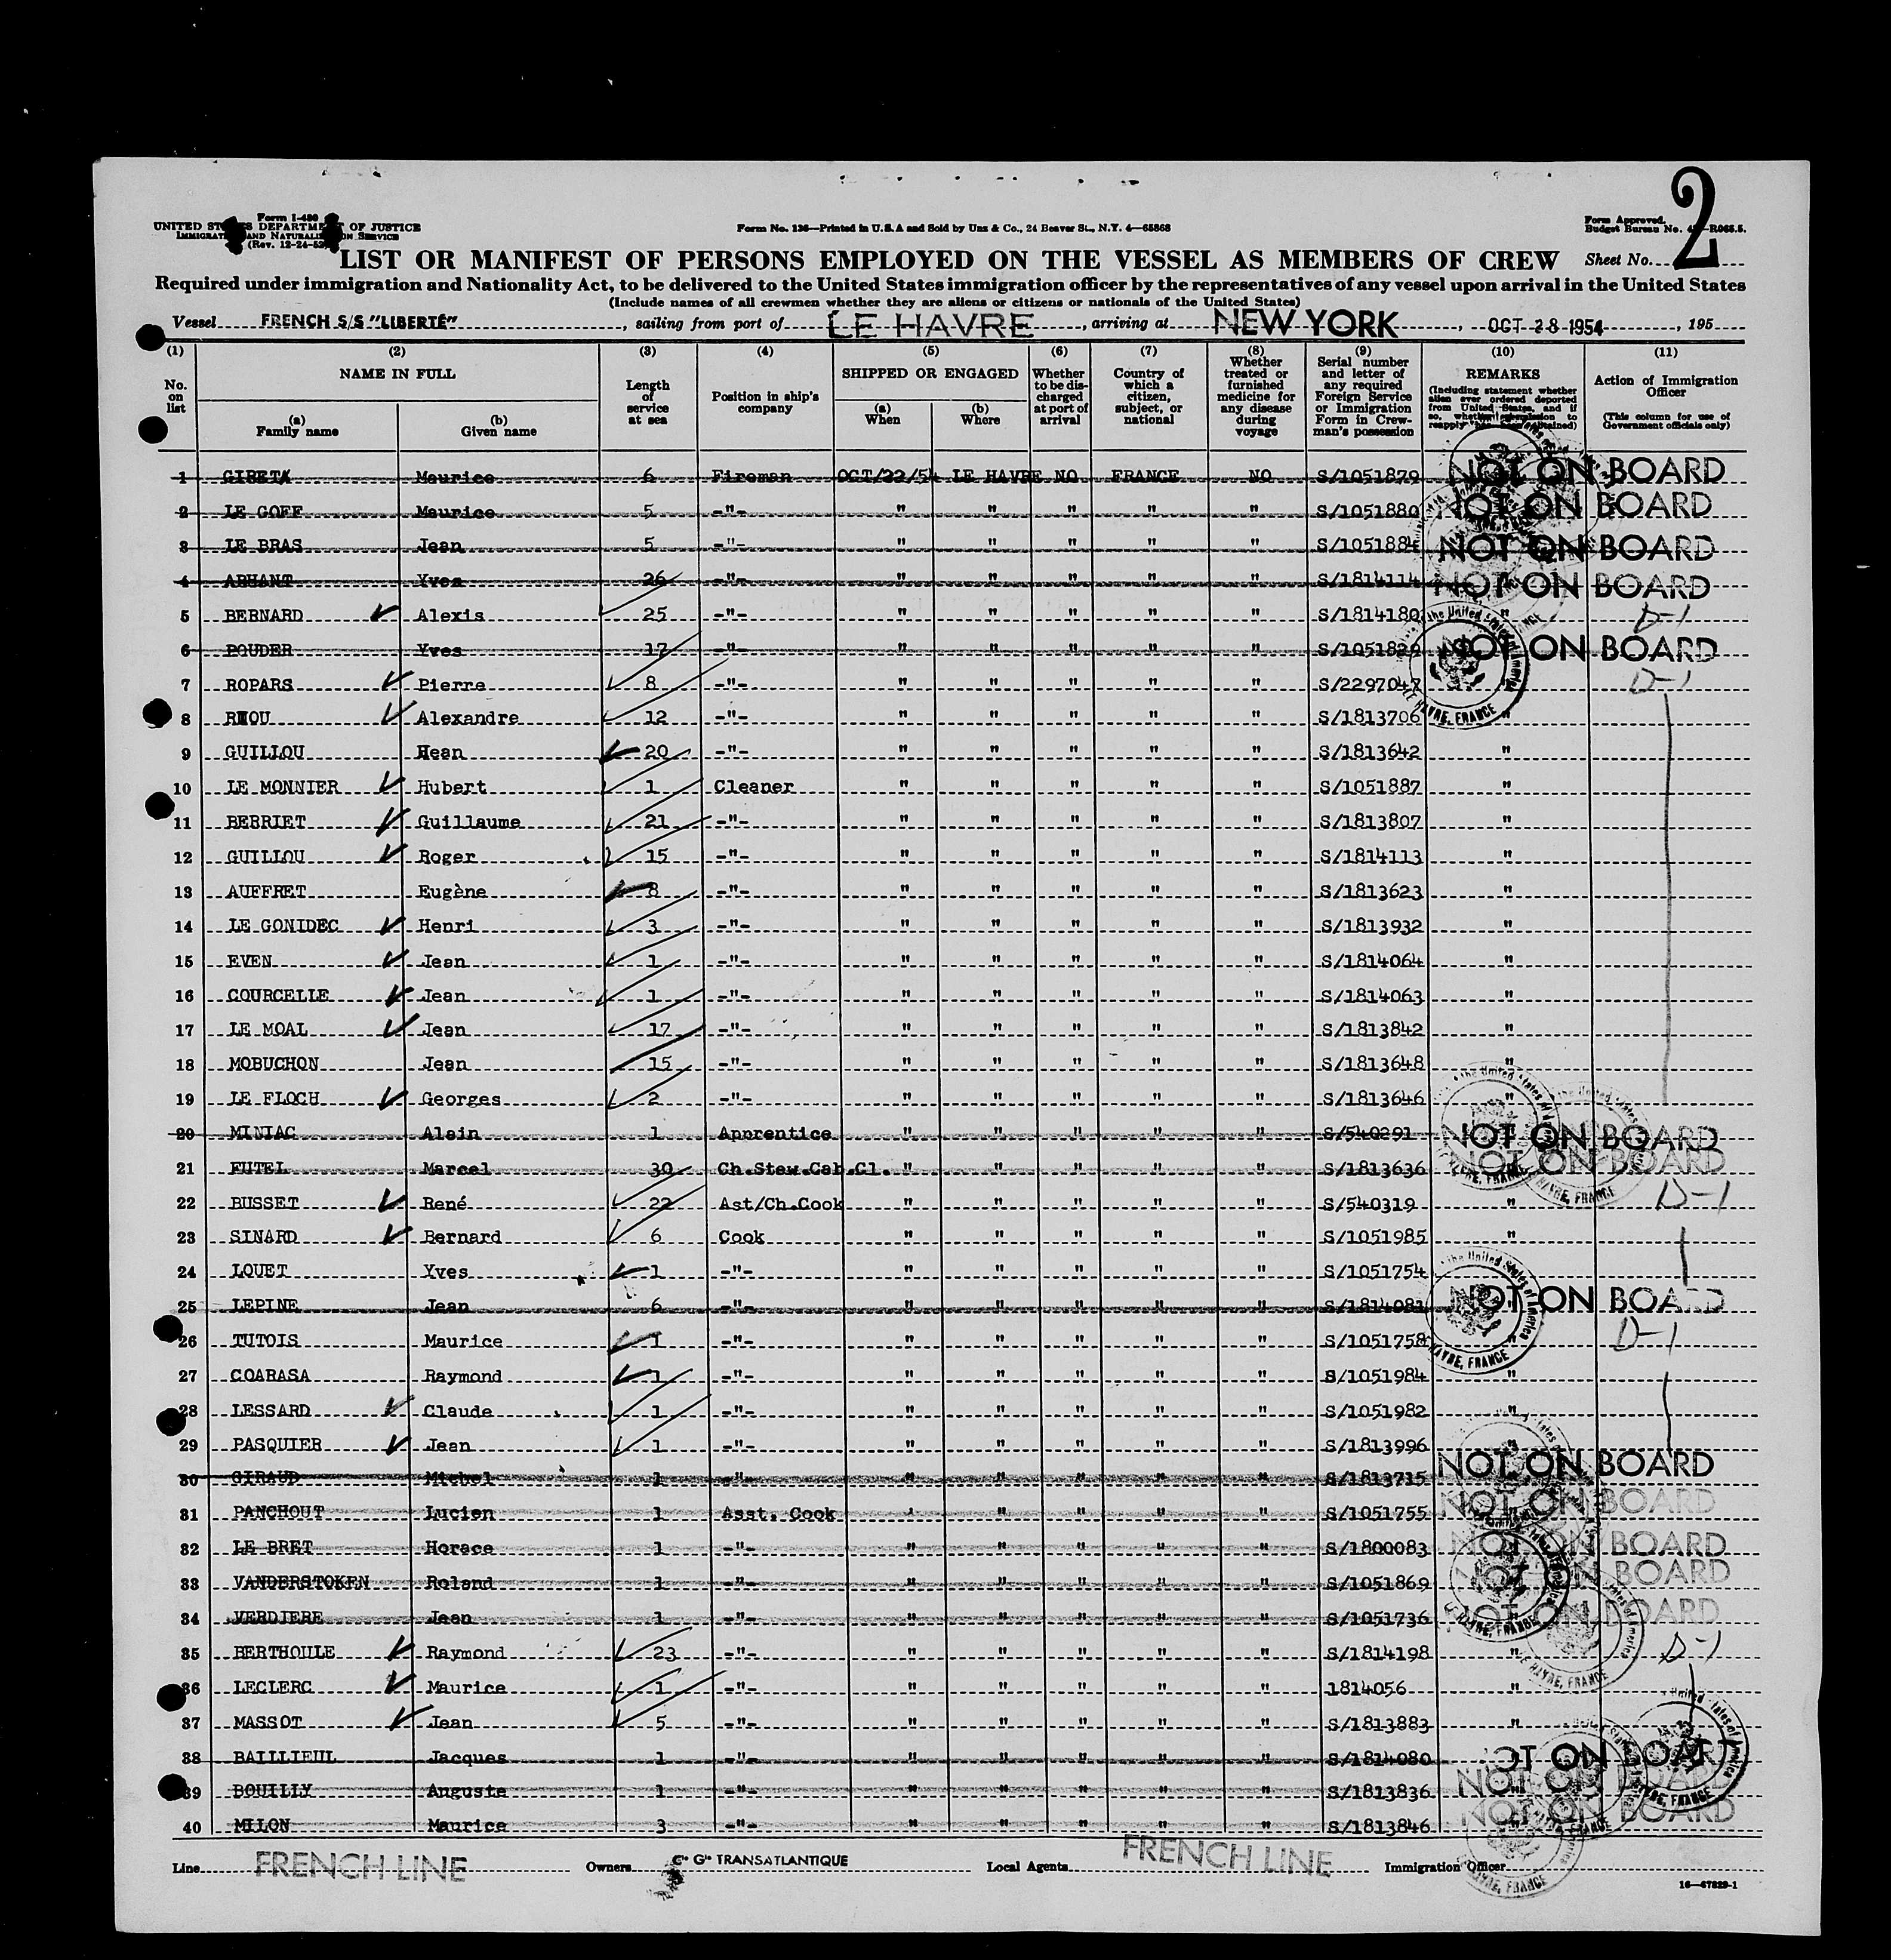 Form I-480
UNITED STATES DEPARTMENT OF JUSTICE
IMMIGRATION AND NATURALIZATION SERVICE
(Rev. 12-24-52)
Form No. 136—Printed in U.S.A and Sold by Unz & Co., 24 Beaver St., N.Y. 4—65868
Form Approved.
Budget Bureau No. R065.5.
2
LIST OR MANIFEST OF PERSONS EMPLOYED ON THE VESSEL AS MEMBERS OF CREW Sheet No.
Required under immigration and Nationality Act, to be delivered to the United States immigration officer by the representatives of any vessel upon arrival in the United States
(Include names of all crewmen whether they are aliens or citizens or nationals of the United States)
Vessel FRENCH S/S "LIBERTÉ", sailing from port of LE HAVRE, arriving at NEW YORK, OCT 28 1954, 195
(1) (2) (3) (4) (5) (6) (7) (8) (9) (10) (11)
No. on list
NAME IN FULL
(a) Family name
(b) Given name
Length of service at sea
Position in ship's company
SHIPPED OR ENGAGED
(a) When
(b) Where
Whether to be discharged at port of arrival
Country of which a citizen, subject, or national
Whether treated or furnished medicine for any disease during voyage
Serial number and letter of any required Foreign Service or Immigration Form in Crewman's possession
REMARKS
(Including statement whether alien ever ordered deported from United States, and if so, whether permission to reapply has been obtained)
Action of Immigration Officer
(This column for use of Government officials only)
1 GIRETA Maurice 6 Fireman OCT/22/54 LE HAVRE NO FRANCE NO S/1051879 NOT ON BOARD
2 LE GOFF Maurice 5 -"- " " " " " S/1051880 NOT ON BOARD
3 LE BRAS Jean 5 -"- " " " " " S/1051884 NOT ON BOARD
4 ABHANT Yves 26 -"- " " " " " S/1814114 NOT ON BOARD
5 BERNARD Alexis 25 -"- " " " " " S/1814180 " D-1
6 POUDER Yves 17 -"- " " " " " S/1051829 NOT ON BOARD
7 ROPARS Pierre 8 -"- " " " " " S/2297047 " D-1
8 RIOU Alexandre 12 -"- " " " " " S/1813706 "
9 GUILLOU Hean 20 -"- " " " " " S/1813642 "
10 LE MONNIER Hubert 1 Cleaner " " " " " S/1051887 "
11 BERRIET Guillaume 21 -"- " " " " " S/1813807 "
12 GUILLOU Roger 15 -"- " " " " " S/1814113 "
13 AUFFRET Eugène 8 -"- " " " " " S/1813623 "
14 LE GONIDEC Henri 3 -"- " " " " " S/1813932 "
15 EVEN Jean 1 -"- " " " " " S/1814064 "
16 COURCELLE Jean 1 -"- " " " " " S/1814063 "
17 LE MOAL Jean 17 -"- " " " " " S/1813842 "
18 MOBUCHON Jean 15 -"- " " " " " S/1813648 "
19 LE FLOCH Georges 2 -"- " " " " " S/1813646 "
20 MINIAC Alain 1 Apprentice " " " " " S/540291 NOT ON BOARD
21 FUTEL Marcel 30 Ch.Stew.Cab.Cl. " " " " " S/1813636 NOT ON BOARD
22 BUSSET René 22 Ast/Ch.Cook " " " " " S/540319 " D-1
23 SINARD Bernard 6 Cook " " " " " S/1051985 "
24 LOUET Yves 1 -"- " " " " " S/1051754
25 LEPINE Jean 6 -"- " " " " " S/1814081 NOT ON BOARD
26 TUTOIS Maurice 1 -"- " " " " " S/1051758 D-1
27 COARASA Raymond 1 -"- " " " " " S/1051984 "
28 LESSARD Claude 1 -"- " " " " " S/1051982 "
29 PASQUIER Jean 1 -"- " " " " " S/1813996 "
30 GIRAUD Michel 1 -"- " " " " " S/1813715 NOT ON BOARD
31 PANCHOUT Lucien 1 Asst. Cook " " " " " S/1051755 NOT ON BOARD
32 LE BRET Horace 1 -"- " " " " " S/1800083 NOT ON BOARD
33 VANDERSTOKEN Roland 1 -"- " " " " " S/1051869 NOT ON BOARD
34 VERDIERE Jean 1 -"- " " " " " S/1051736 NOT ON BOARD
35 BERTHOULE Raymond 23 -"- " " " " " S/1814198 " D-1
36 LECLERC Maurice 1 -"- " " " " " 1814056 "
37 MASSOT Jean 5 -"- " " " " " S/1813883 "
38 BAILLIEUL Jacques 1 -"- " " " " " S/1814080 NOT ON BOARD
39 BOUILLY Auguste 1 -"- " " " " " S/1813836 NOT ON BOARD
40 MILON Maurice 3 -"- " " " " " S/1813846 NOT ON BOARD
Line FRENCH LINE Owners Cie Gle TRANSATLANTIQUE Local Agents FRENCH LINE Immigration Officer
16—67829-1